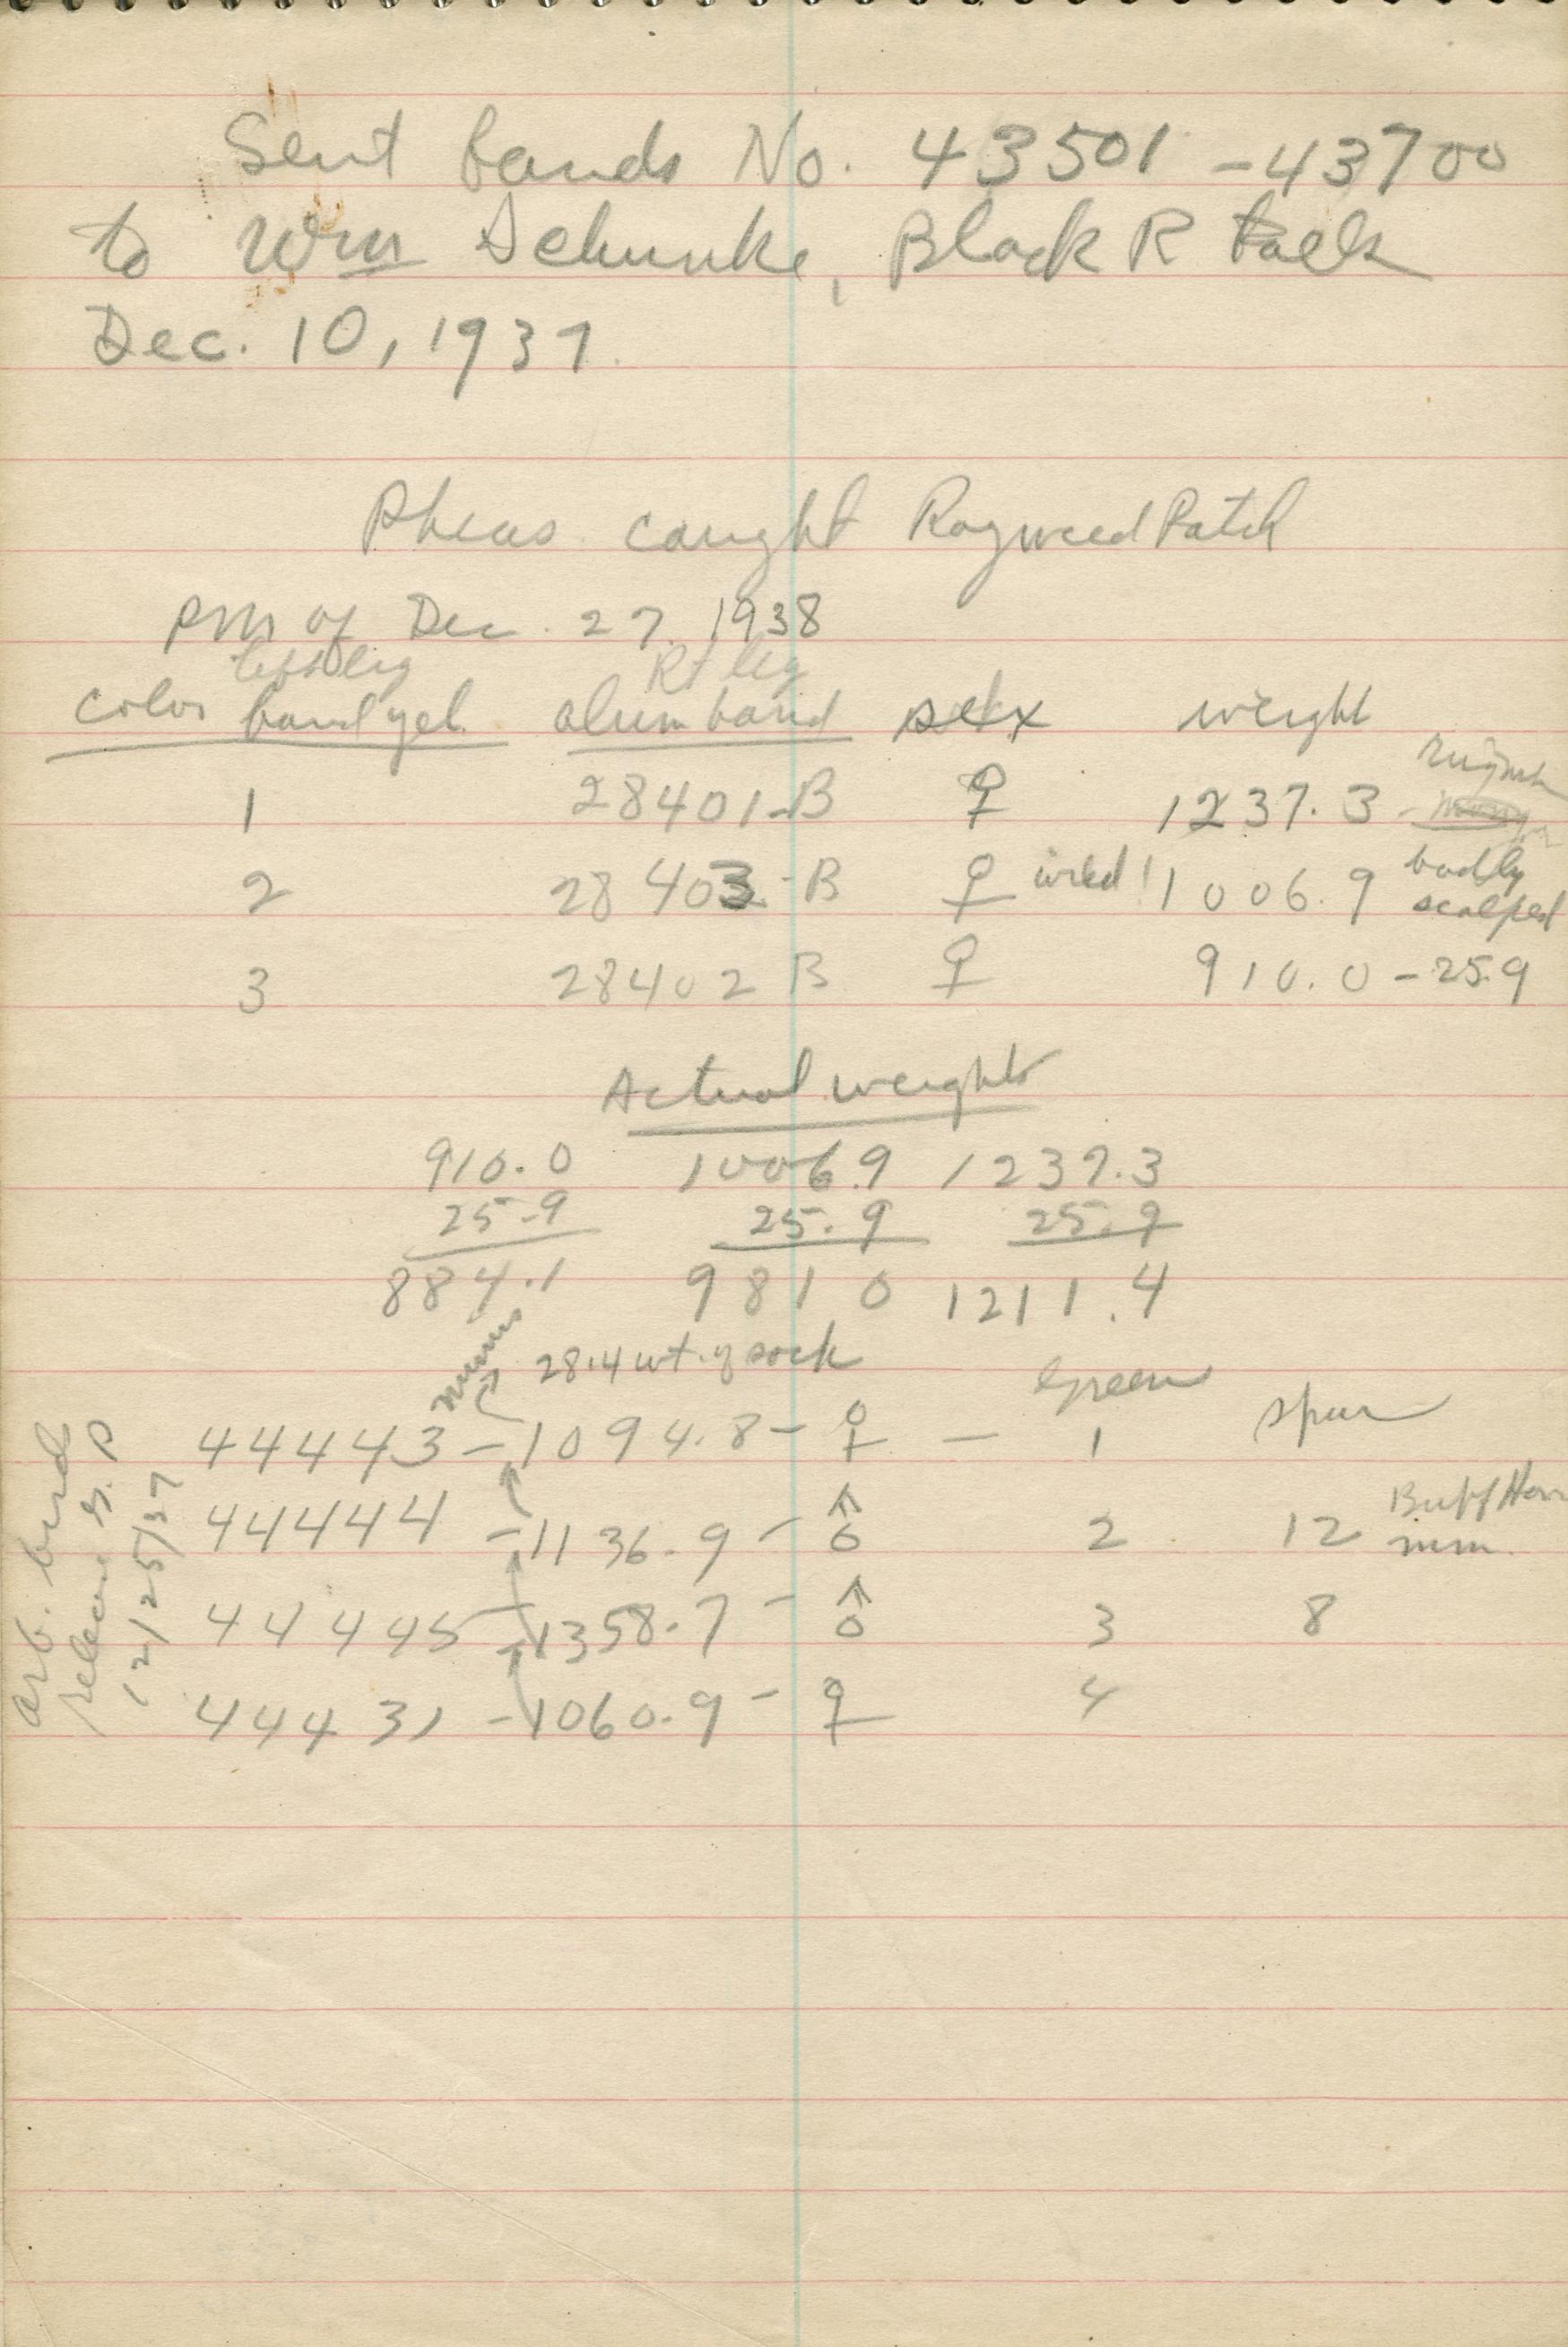 Sent bands No. 43501 - 43700
to Wm Schunke, Black R Falls
Dec. 10, 1937.
Pheas. caught Ragweed Patch
PM of Dec. 27, 1938
left leg Rt leg
color band yel. alum band sex weight
1 28401-B ♀ 1237.3 -
2 28403-B ♀ wild! 1006.9 badly scalped
3 28402 B ♀ 910.0 - 25.9
Actual weights
910.0 1006.9 1237.3
25.9 25.9 25.9
884.1 981 0 1211.4
minus 28.4 wt. of sack Green spur
44443 - 1094.8 - ♀ - 1
44444 - 1136.9 - ♂ 2 12 mm. Buff
44445 - 1358.7 - ♂ 3 8
44431 - 1060.9 - ♀ 4
arb. birds
release P
12/25/37